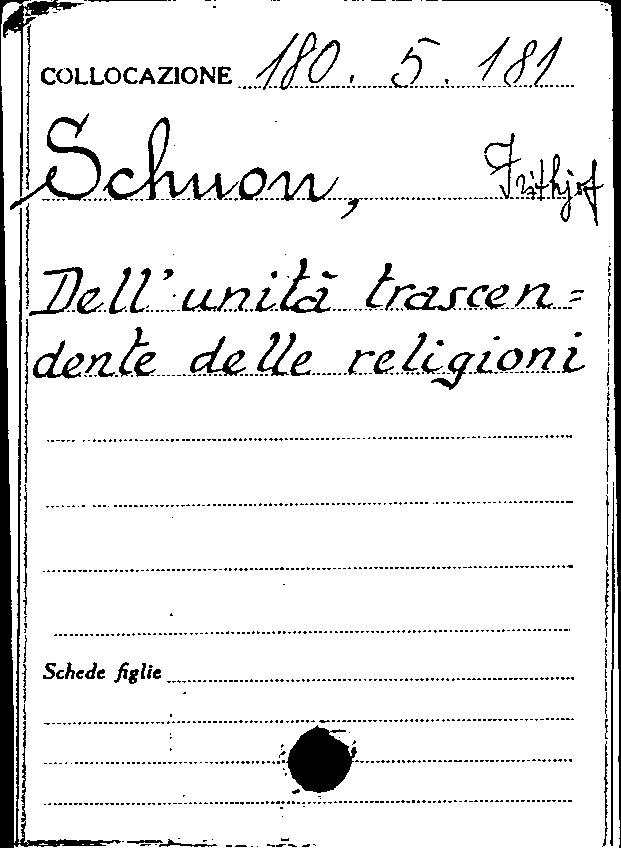 COLLOCAZIONE 180. 5. 181
Schuon, Frithjof
Dell'unità trascen=
dente delle religioni
Schede figlie